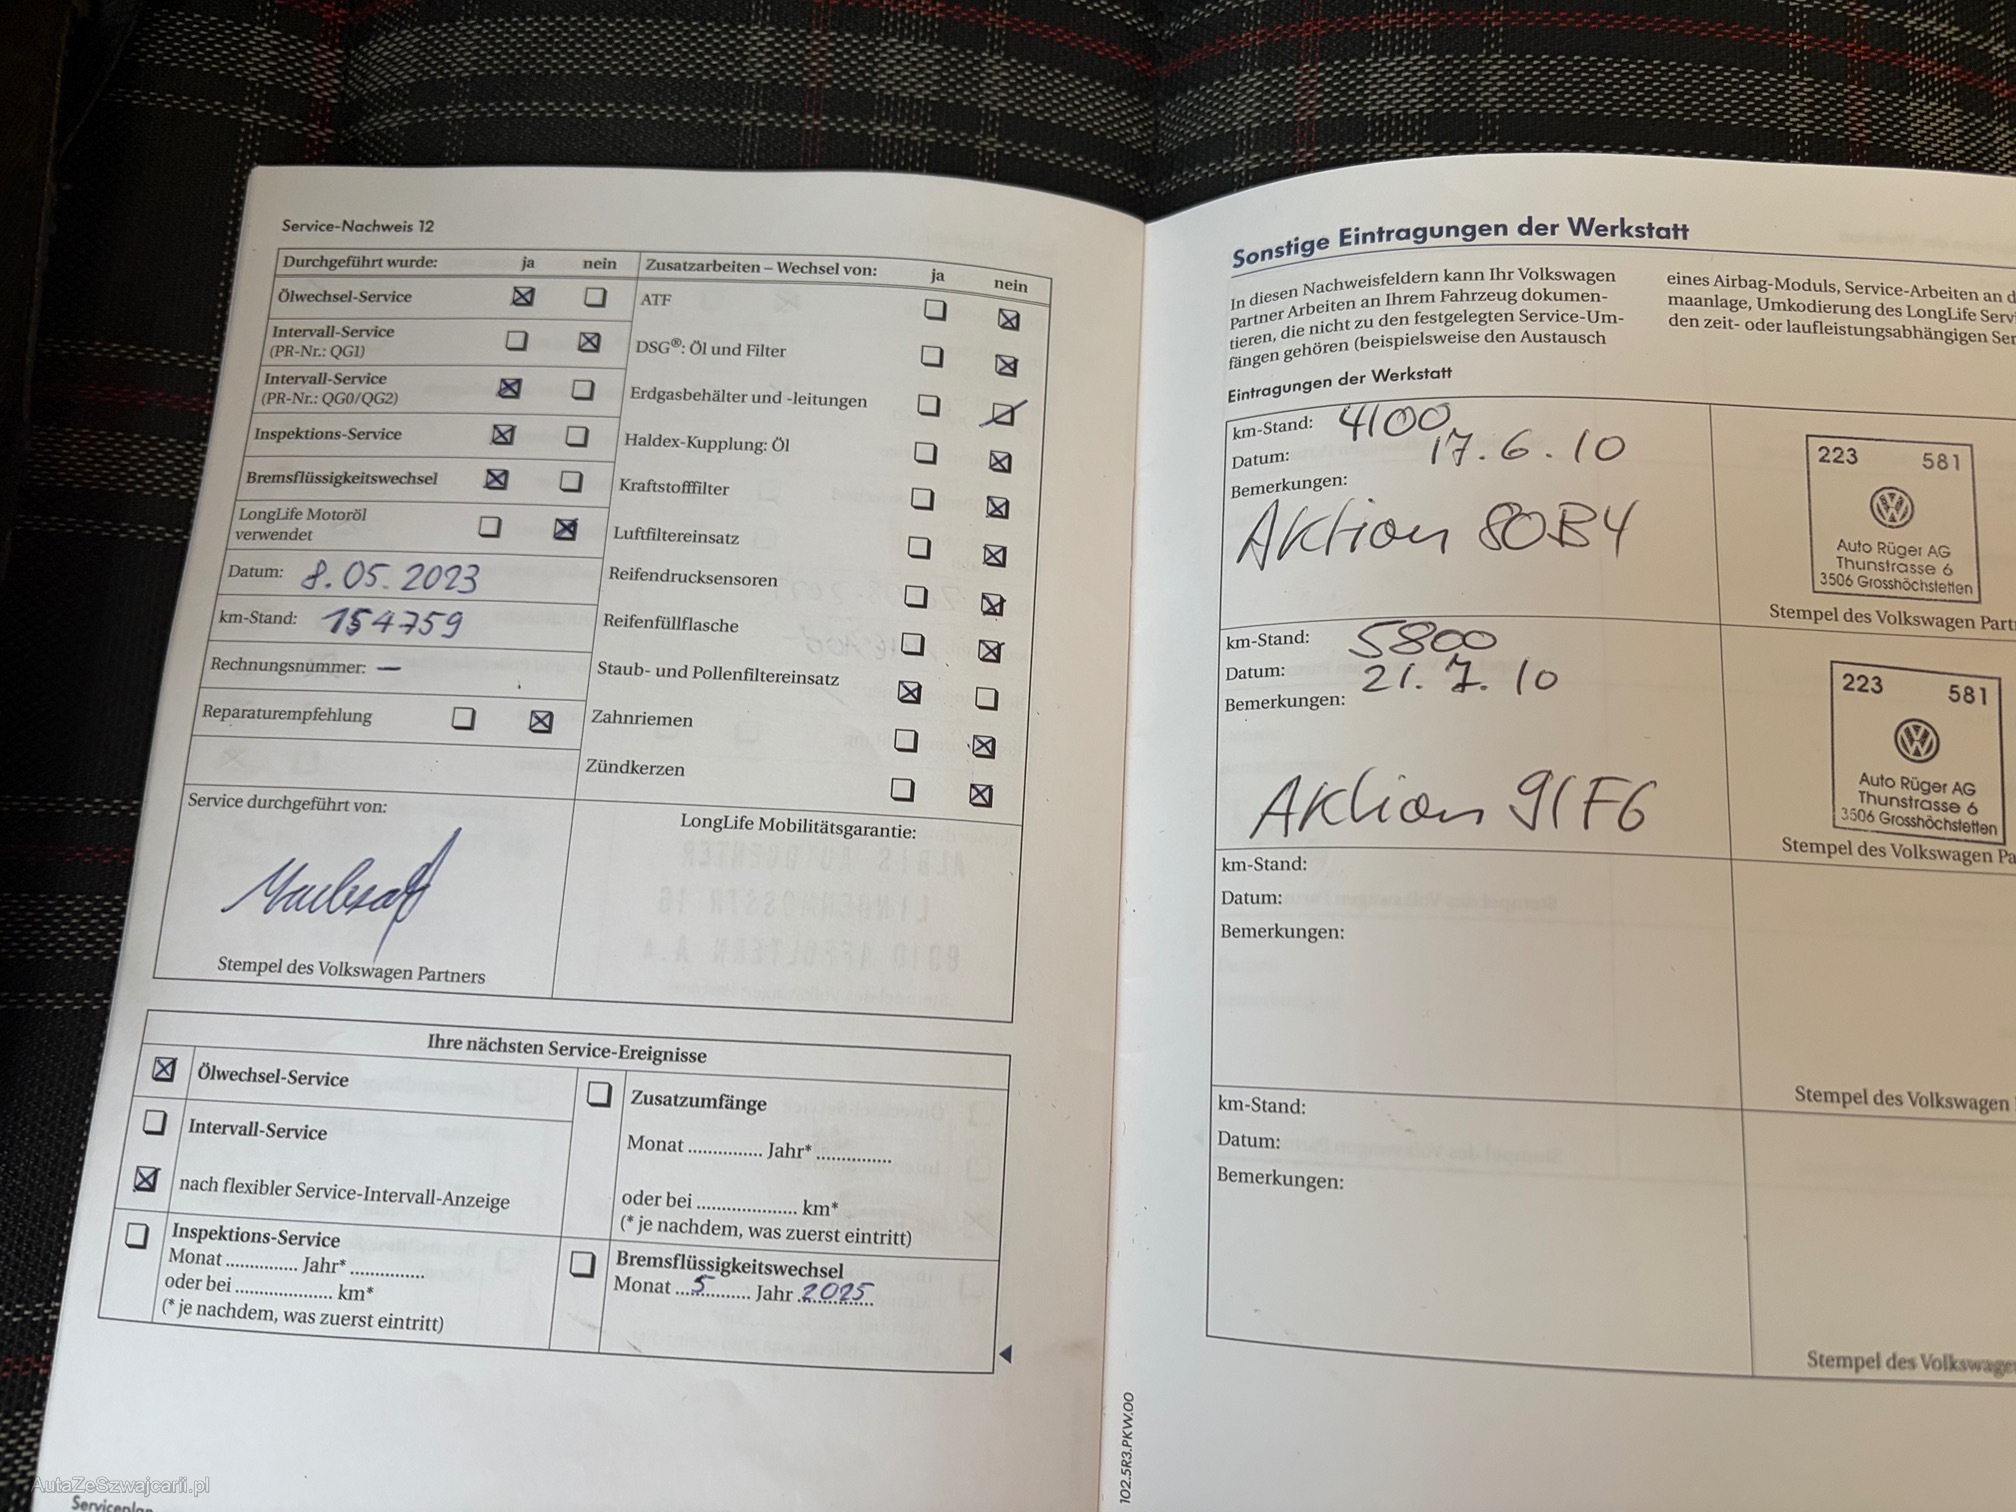 Service-Nachweis 12
Durchgeführt wurde: ja nein
Ölwechsel-Service
Intervall-Service
(PR-Nr.: QG1)
Intervall-Service
(PR-Nr.: QG0/QG2)
Inspektions-Service
Bremsflüssigkeitswechsel
LongLife Motoröl
verwendet
Datum: 8.05.2023
km-Stand: 154759
Rechnungsnummer: —
Reparaturempfehlung
Zusatzarbeiten – Wechsel von: ja nein
ATF
DSG®: Öl und Filter
Erdgasbehälter und -leitungen
Haldex-Kupplung: Öl
Kraftstofffilter
Luftfiltereinsatz
Reifendrucksensoren
Reifenfüllflasche
Staub- und Pollenfiltereinsatz
Zahnriemen
Zündkerzen
Service durchgeführt von:
Stempel des Volkswagen Partners
LongLife Mobilitätsgarantie:
Ihre nächsten Service-Ereignisse
Ölwechsel-Service
Intervall-Service
nach flexibler Service-Intervall-Anzeige
Inspektions-Service
Monat .............. Jahr* ..............
oder bei .................... km*
(* je nachdem, was zuerst eintritt)
Zusatzumfänge
Monat .............. Jahr* ..............
oder bei .................... km*
(* je nachdem, was zuerst eintritt)
Bremsflüssigkeitswechsel
Monat ...5......... Jahr 2025
Serviceplan
AutaZeSzwajcarii.pl
102.5R3.PKW.00
Sonstige Eintragungen der Werkstatt
In diesen Nachweisfeldern kann Ihr Volkswagen
Partner Arbeiten an Ihrem Fahrzeug dokumen-
tieren, die nicht zu den festgelegten Service-Um-
fängen gehören (beispielsweise den Austausch
eines Airbag-Moduls, Service-Arbeiten an d
maanlage, Umkodierung des LongLife Servi
den zeit- oder laufleistungsabhängigen Ser
Eintragungen der Werkstatt
km-Stand: 4100
Datum: 17.6.10
Bemerkungen:
Aktion 80B4
223 581
Auto Rüger AG
Thunstrasse 6
3506 Grosshöchstetten
Stempel des Volkswagen Partn
km-Stand: 5800
Datum: 21.7.10
Bemerkungen:
Aktion 91F6
223 581
Auto Rüger AG
Thunstrasse 6
3506 Grosshöchstetten
Stempel des Volkswagen Pa
km-Stand:
Datum:
Bemerkungen:
Stempel des Volkswagen
km-Stand:
Datum:
Bemerkungen:
Stempel des Volkswage